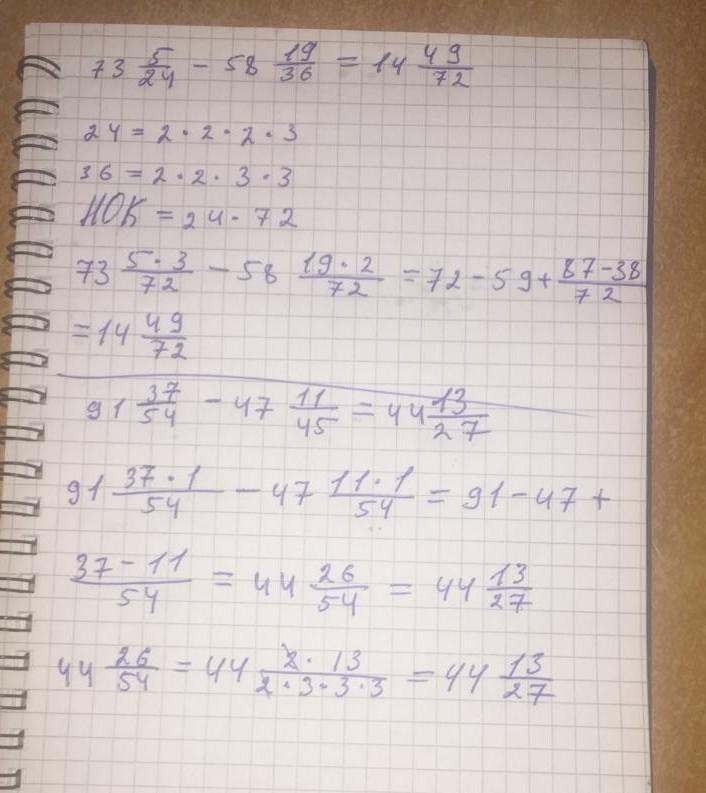 73 5/24 - 58 19/36 = 14 49/72
24 = 2 · 2 · 2 · 3
36 = 2 · 2 · 3 · 3
НОК = 24 · 72
73 5·3/72 - 58 19·2/72 = 72 - 59 + 87-38/72
= 14 49/72
91 37/54 - 47 11/45 = 44 13/27
91 37·1/54 - 47 11·1/54 = 91 - 47 +
37-11/54 = 44 26/54 = 44 13/27
44 26/54 = 44 2·13/2·3·3·3 = 44 13/27